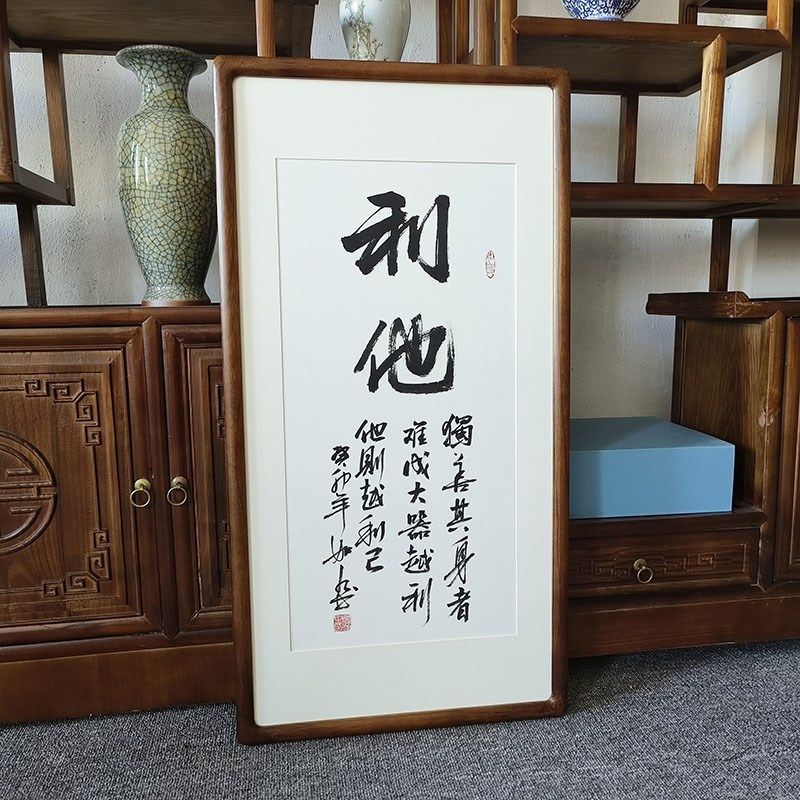 利他
獨善其身者
難成大器越利
他則越利己
癸卯年如